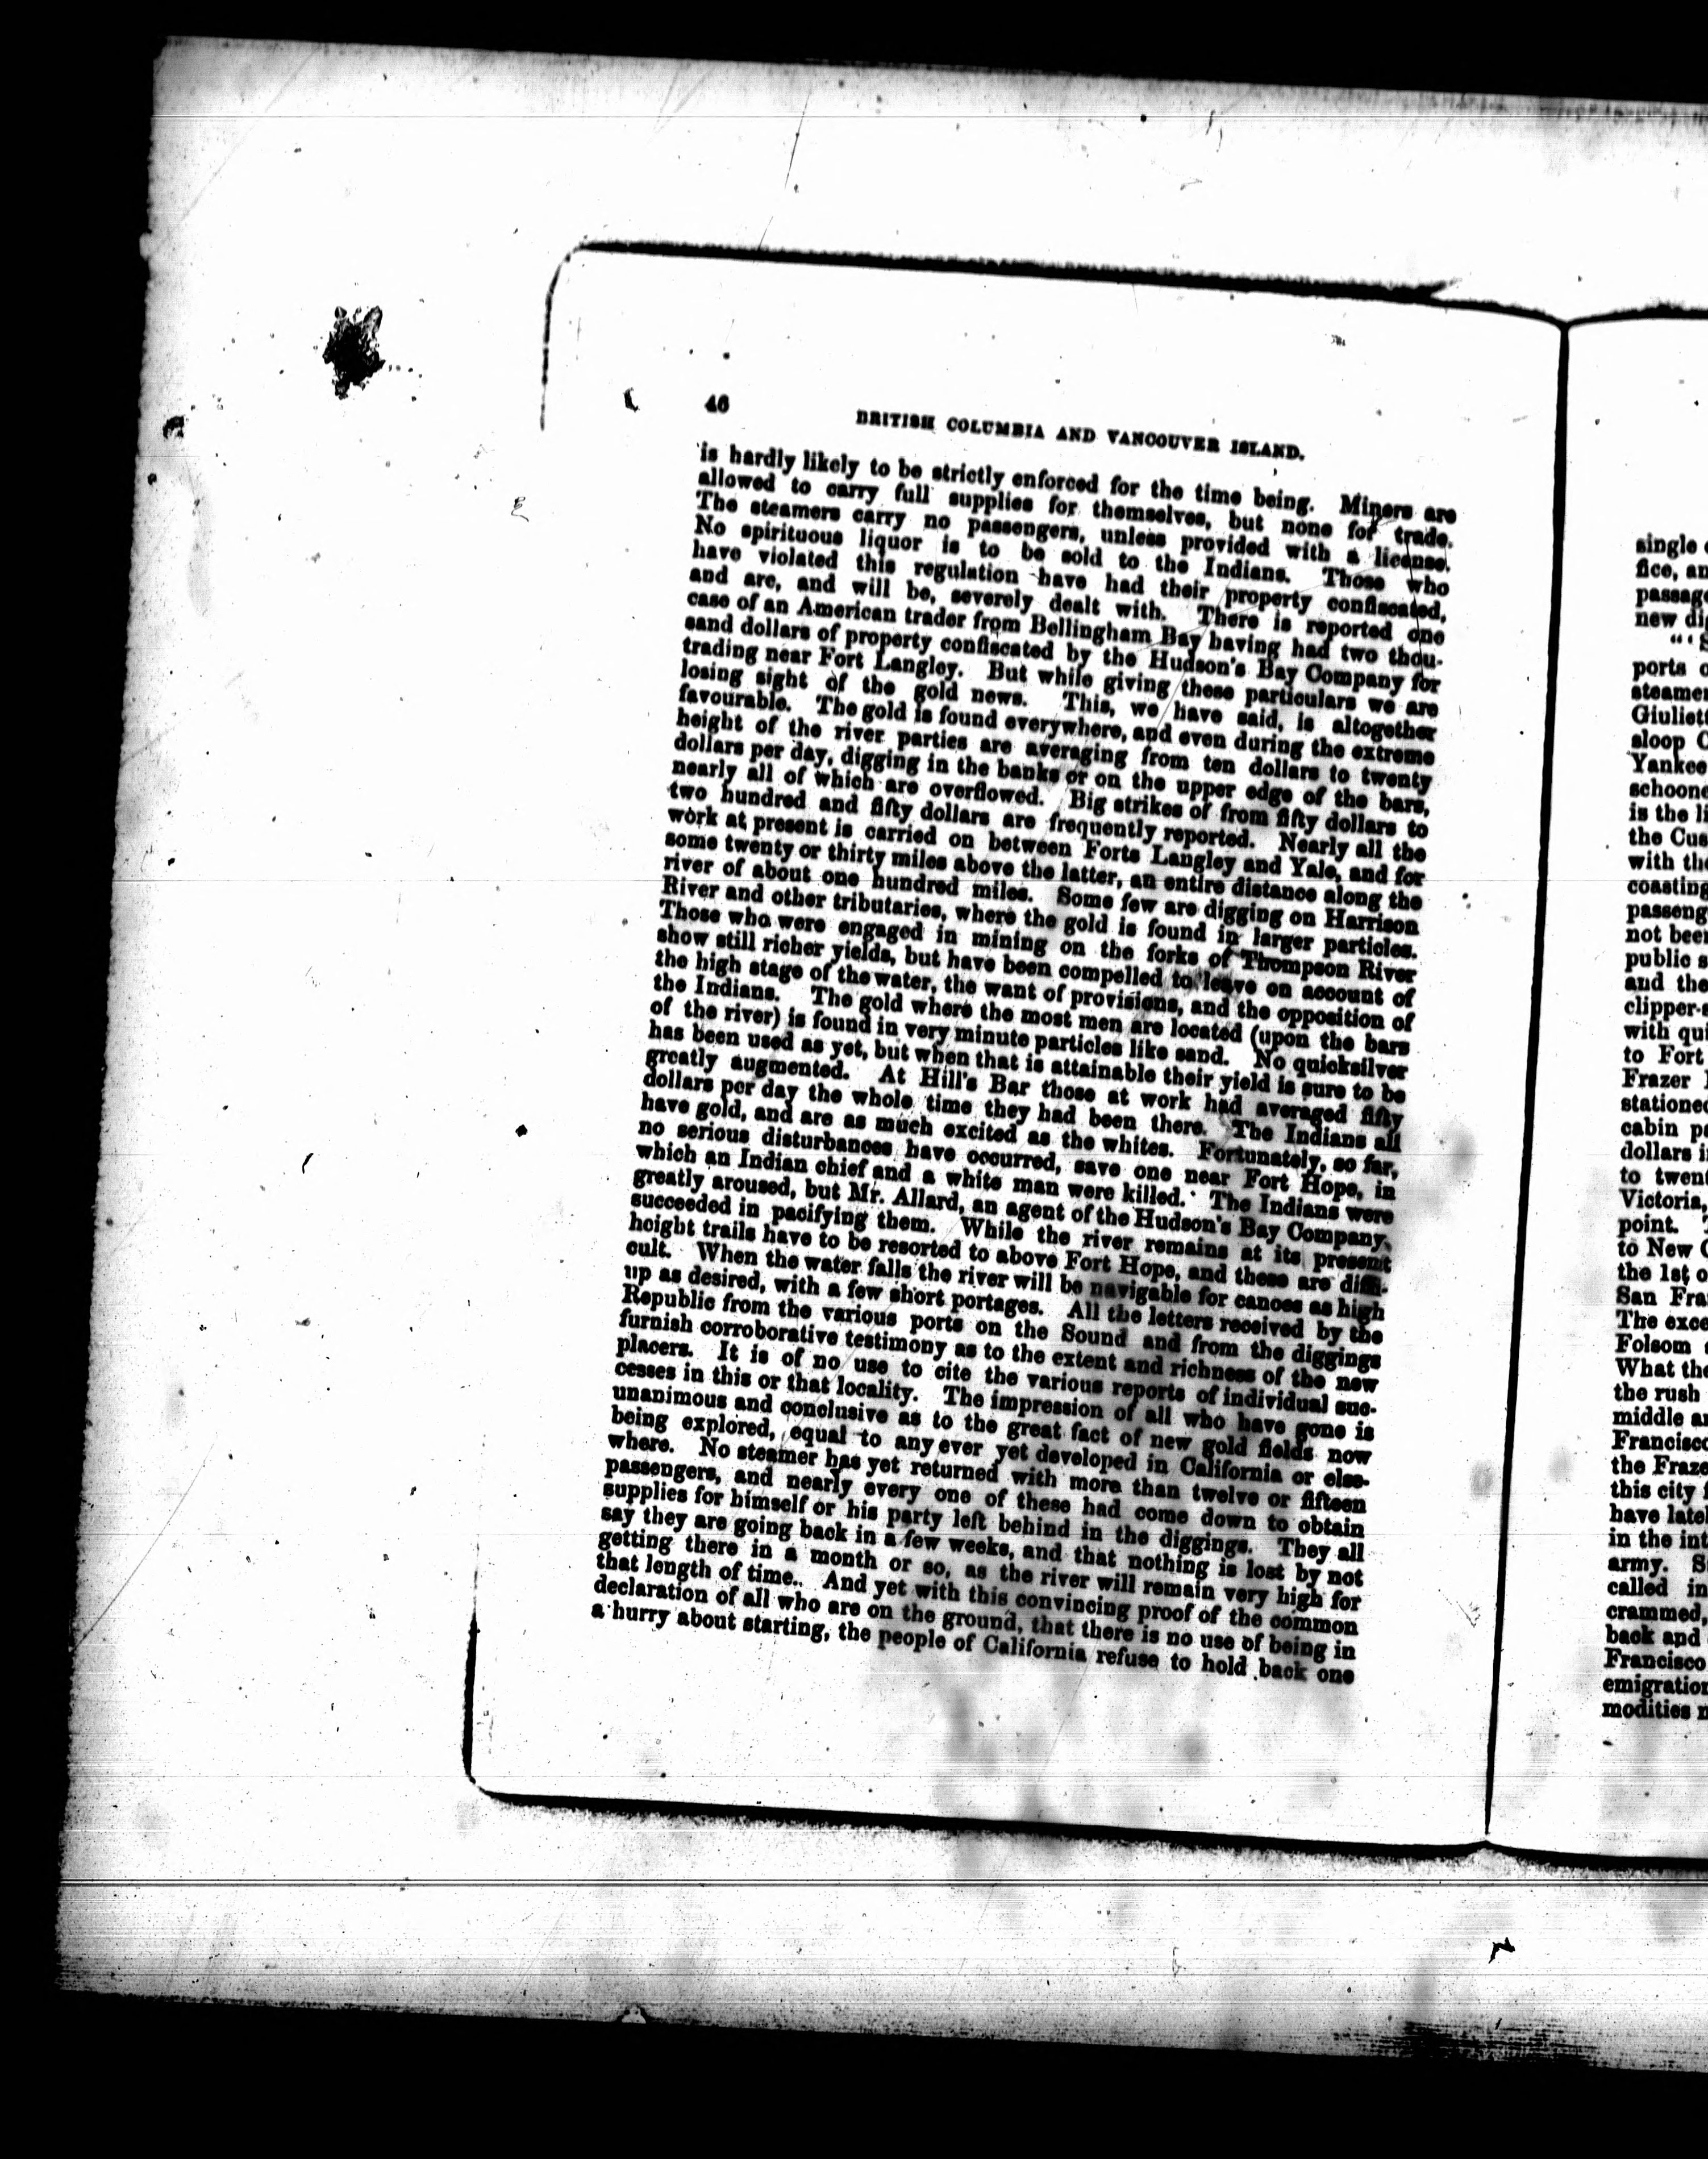 46
BRITISH COLUMBIA AND VANCOUVER ISLAND.
is hardly likely to be strictly enforced for the time being. Miners are
allowed to carry full supplies for themselves, but none for trade.
The steamers carry no passengers, unless provided with a license.
No spirituous liquor is to be sold to the Indians. Those who
have violated this regulation have had their property confiscated,
and are, and will be, severely dealt with. There is reported one
case of an American trader from Bellingham Bay having had two thou-
sand dollars of property confiscated by the Hudson's Bay Company for
trading near Fort Langley. But while giving these particulars we are
losing sight of the gold news. This, we have said, is altogether
favourable. The gold is found everywhere, and even during the extreme
height of the river parties are averaging from ten dollars to twenty
dollars per day, digging in the banks or on the upper edge of the bars,
nearly all of which are overflowed. Big strikes of from fifty dollars to
two hundred and fifty dollars are frequently reported. Nearly all the
work at present is carried on between Forts Langley and Yale, and for
some twenty or thirty miles above the latter, an entire distance along the
river of about one hundred miles. Some few are digging on Harrison
River and other tributaries, where the gold is found in larger particles.
Those who were engaged in mining on the forks of Thompson River
show still richer yields, but have been compelled to leave on account of
the high stage of the water, the want of provisions, and the opposition of
the Indians. The gold where the most men are located (upon the bars
of the river) is found in very minute particles like sand. No quicksilver
has been used as yet, but when that is attainable their yield is sure to be
greatly augmented. At Hill's Bar those at work had averaged fifty
dollars per day the whole time they had been there. The Indians all
have gold, and are as much excited as the whites. Fortunately, so far,
no serious disturbances have occurred, save one near Fort Hope, in
which an Indian chief and a white man were killed. The Indians were
greatly aroused, but Mr. Allard, an agent of the Hudson's Bay Company,
succeeded in pacifying them. While the river remains at its present
height trails have to be resorted to above Fort Hope, and these are diffi-
cult. When the water falls the river will be navigable for canoes as high
up as desired, with a few short portages. All the letters received by the
Republic from the various ports on the Sound and from the diggings
furnish corroborative testimony as to the extent and richness of the new
placers. It is of no use to cite the various reports of individual suc-
cesses in this or that locality. The impression of all who have gone is
unanimous and conclusive as to the great fact of new gold fields now
being explored, equal to any ever yet developed in California or else-
where. No steamer has yet returned with more than twelve or fifteen
passengers, and nearly every one of these had come down to obtain
supplies for himself or his party left behind in the diggings. They all
say they are going back in a few weeks, and that nothing is lost by not
getting there in a month or so, as the river will remain very high for
that length of time. And yet with this convincing proof of the common
declaration of all who are on the ground, that there is no use of being in
a hurry about starting, the people of California refuse to hold back one
single
fice, an
passage
new dig
ports o
steamer
Giuliett
sloop C
Yankee
schoone
is the li
the Cus
with the
coasting
passeng
not been
public s
and the
clipper-s
with qui
to Fort
Frazer
stationed
cabin pa
dollars i
to twent
Victoria,
point.
to New G
the 1st o
San Fra
The exce
Folsom
What the
the rush
middle an
Francisco
the Fraze
this city
have latel
in the int
army. S
called in
crammed,
back and
Francisco
emigration
modities n